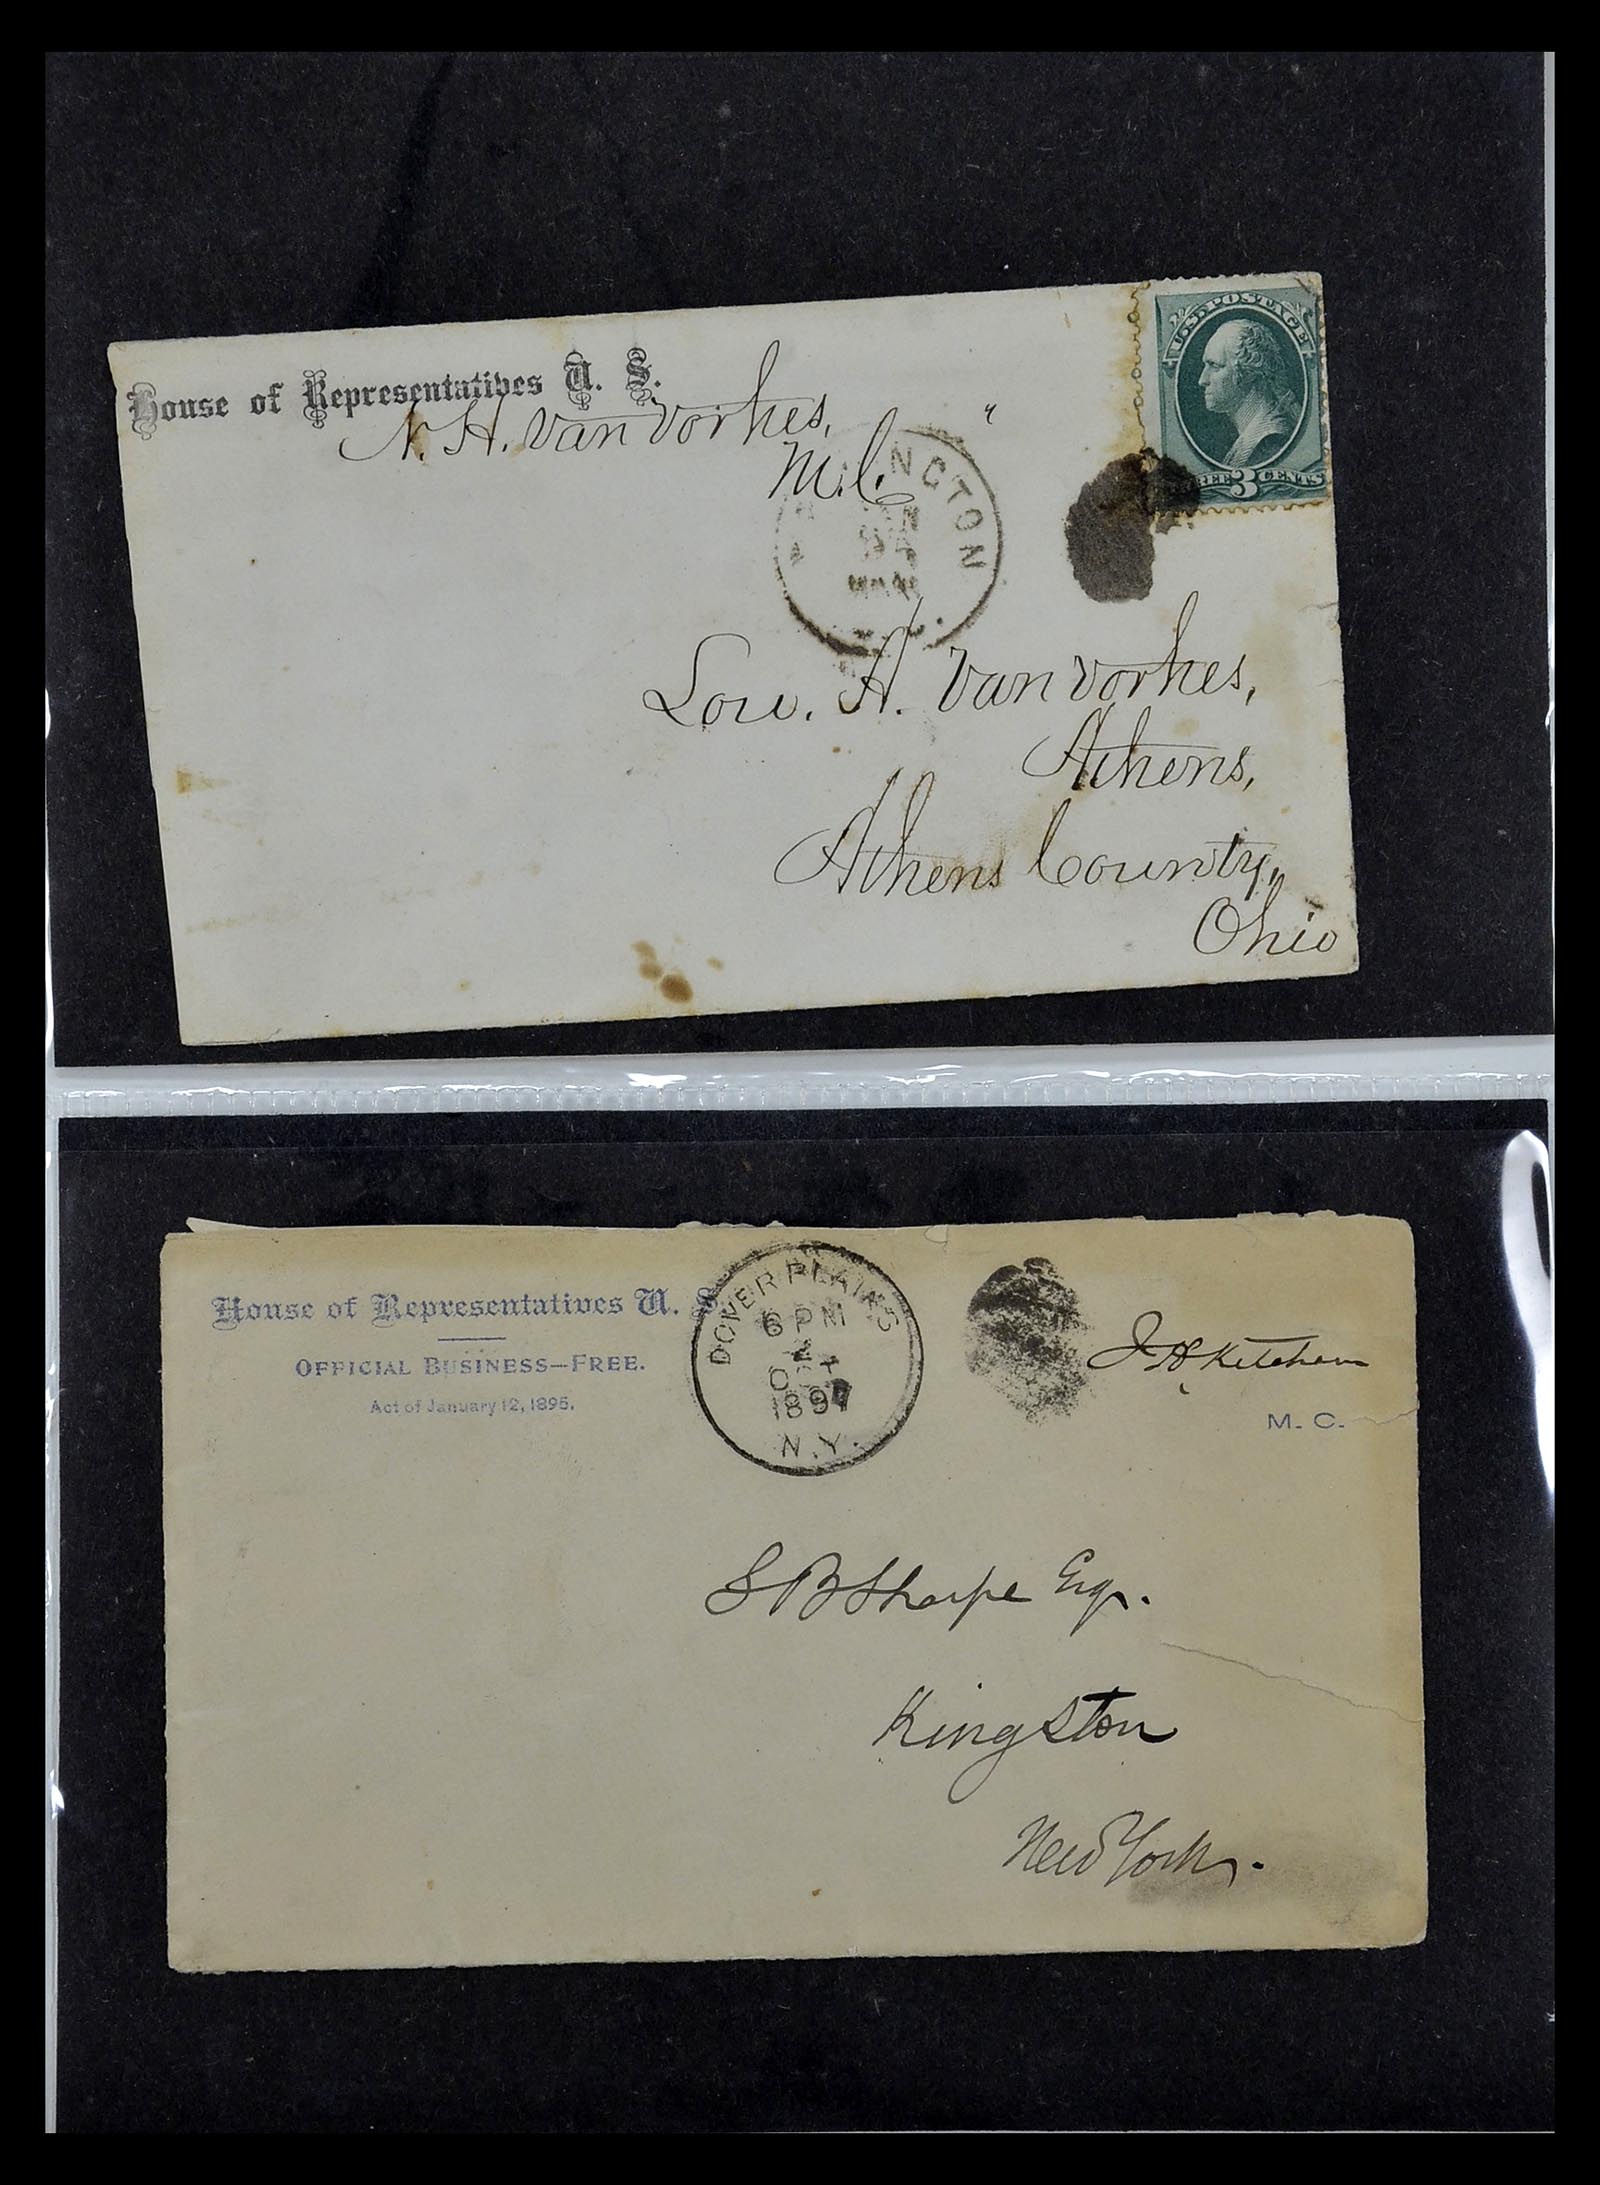 House of Representatives U. S.
N. H. Van Vorhes,
M.C.
U.S. POSTAGE
THREE 3 CENTS
JAN
Low. H. Van Vorhes,
Athens,
Athens County,
Ohio
House of Representatives U. S.
OFFICIAL BUSINESS—FREE.
Act of January 12, 1895.
DOVER PLAINS
6 PM
2
OCT
1897
N.Y.
J H Ketcham
M. C.
S B Sharpe Esq.
Kingston
New York.